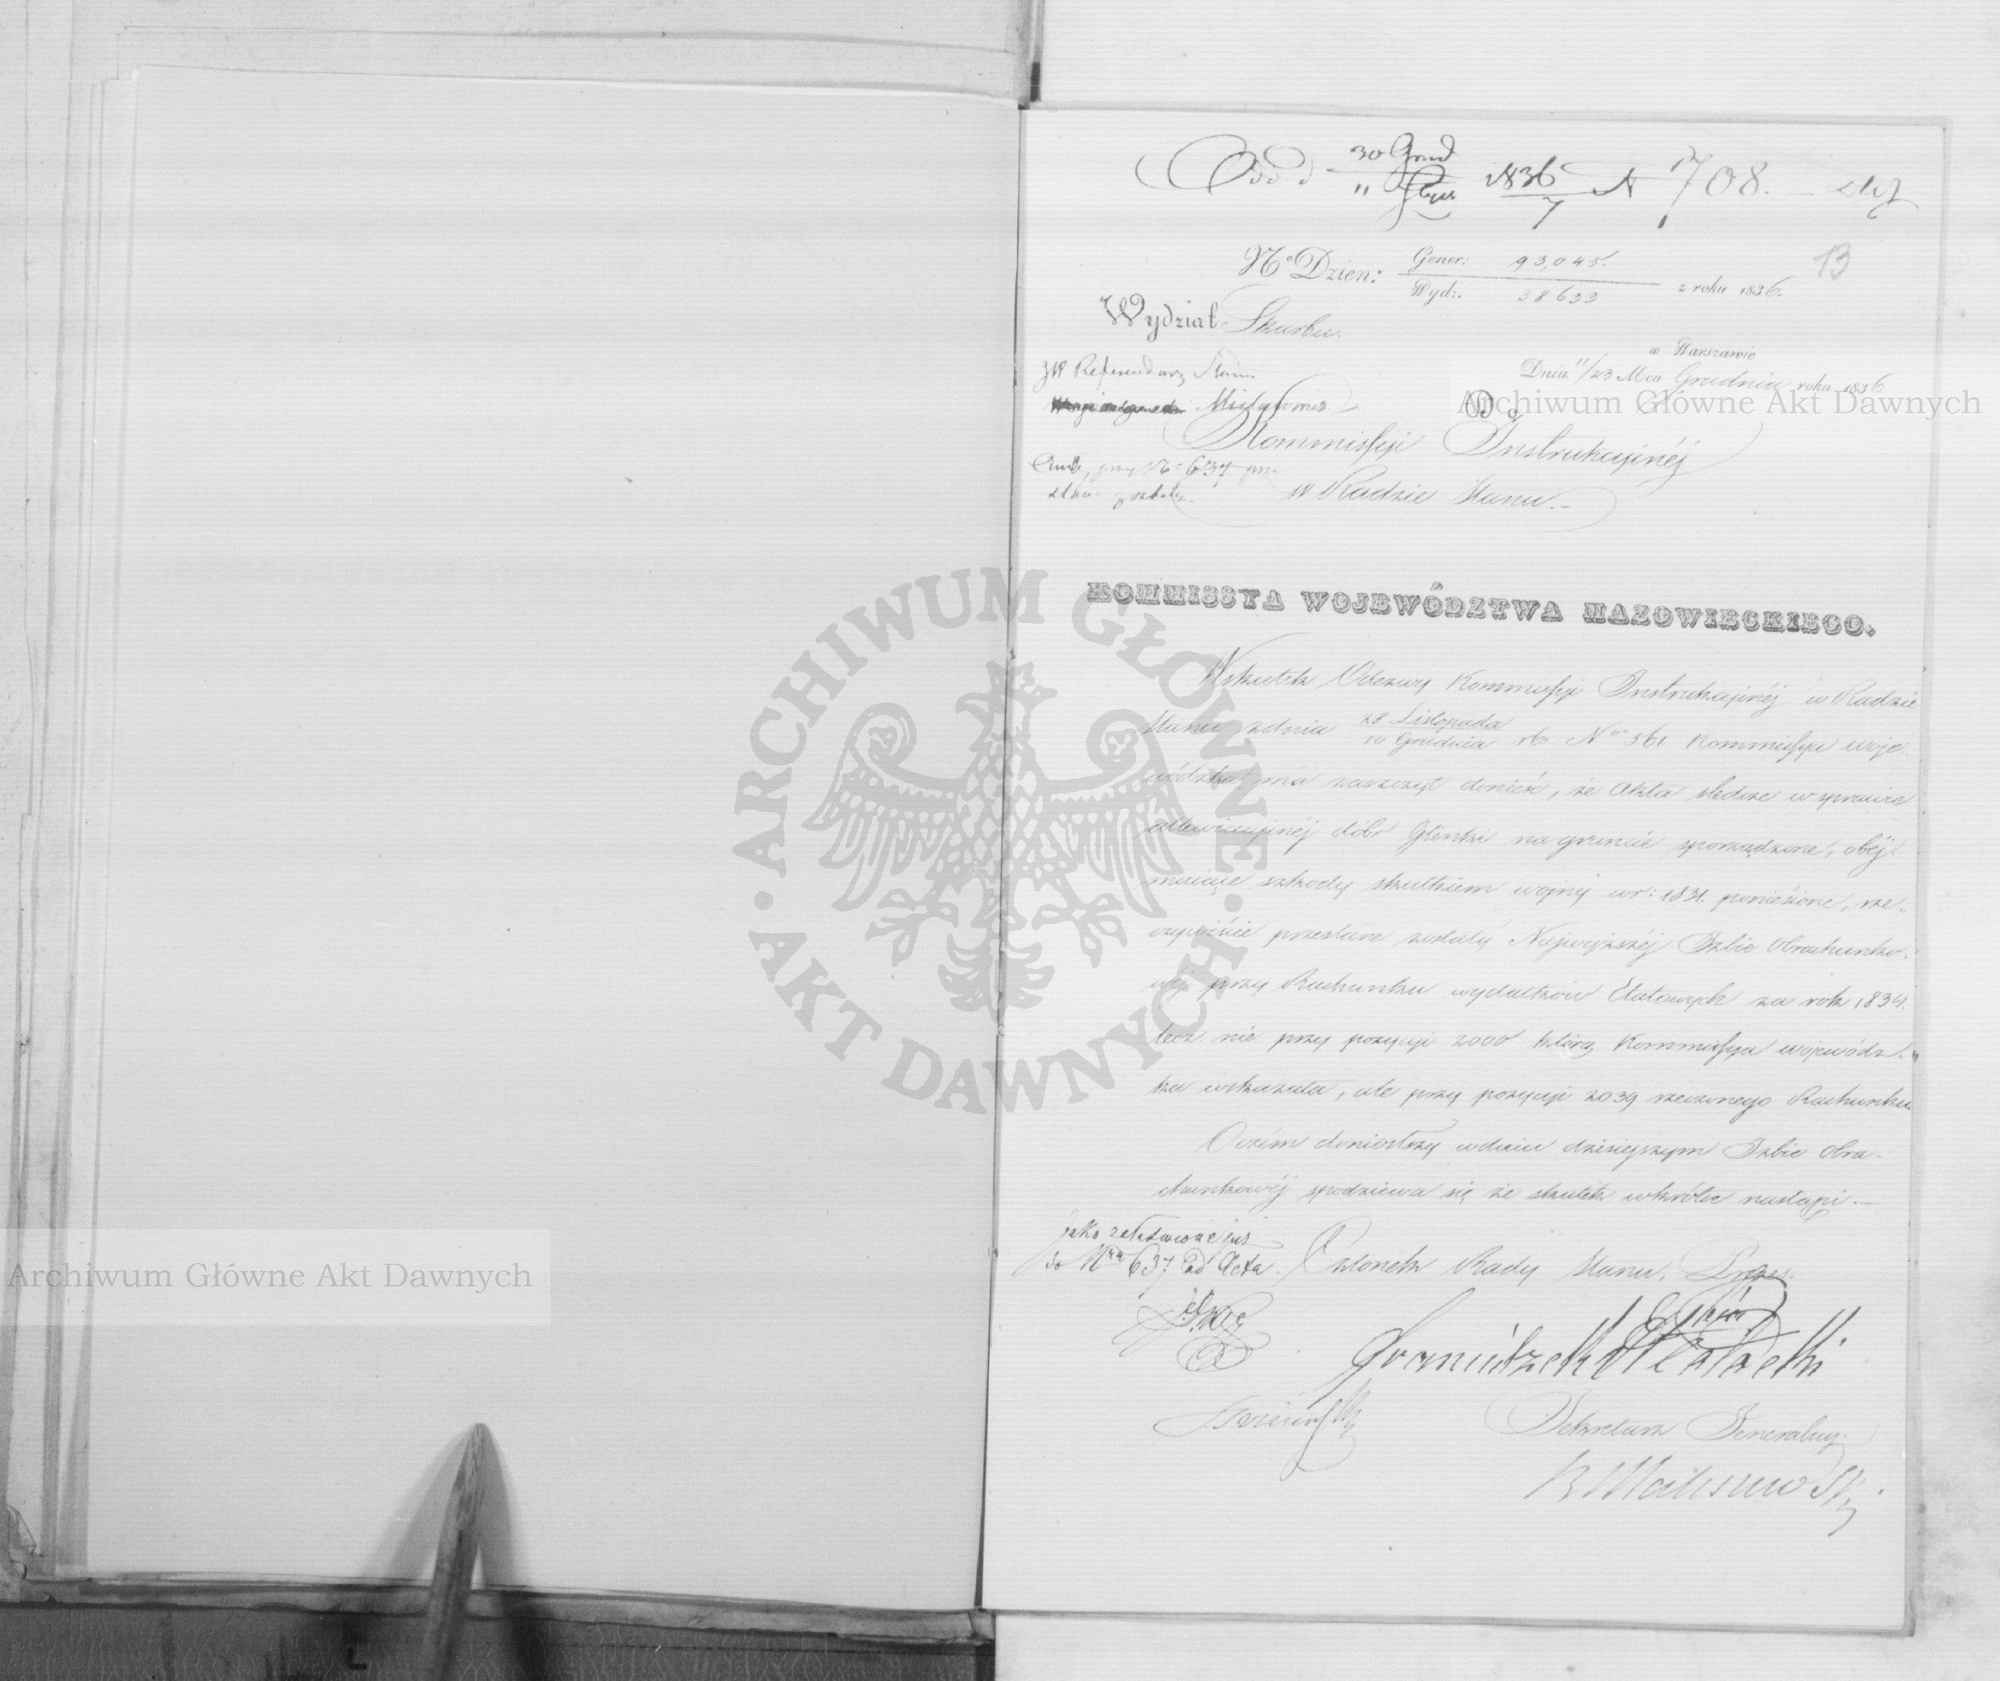 Odd d 30 Grud 1836 N 1708.
" Stycz 7
13
No Dzien: Gener: 93,045.
Wydz. 38633 z roku 1836.
Wydział Skarbu.
w Warszawie
Dnia 11/23 Mca Grudnia roku 1836
JW Referendarz Stanu
Do
Kommissyi Instrukcyjnéj
przy No 637
w Radzie Stanu.
KOMMISSYA WOJEWÓDZTWA MAZOWIECKIEGO.
Wskutek Odezwy Kommissyi Instrukcyjnéj w Radzie
Stanu z dnia 28 Listopada / 10 Grudnia rb. No 561. Kommissya woje-
wódzka ma zaszczyt donieść, że Akta śledcze w sprawie
allewiacyjnéj dóbr Glinki na gruncie sporządzone, obej-
mujące szkody skutkiem wojny w r: 1831. poniesione, rze-
czywiście przesłane zostały Najwyższéj Izbie Obrachunko-
wéj przy Rachunku wydatków Etatowych za rok 1834.
lecz nie przy pozycyi 2000 którą Kommissya wojewódz-
ka wskazała, ale przy pozycyi 2039 rzeczonego Rachunku.
O czém doniosłszy w dniu dzisiejszym Izbie Obra-
chunkowéj spodziewa się że skutek wkrótce nastąpi.
jako załatwione już
do Nra 637. ad Acta.
Członek Rady Stanu, Prezes
Sekretarz Generalny
ARCHIWUM GŁÓWNE
AKT DAWNYCH
Archiwum Główne Akt Dawnych
Archiwum Główne Akt Dawnych